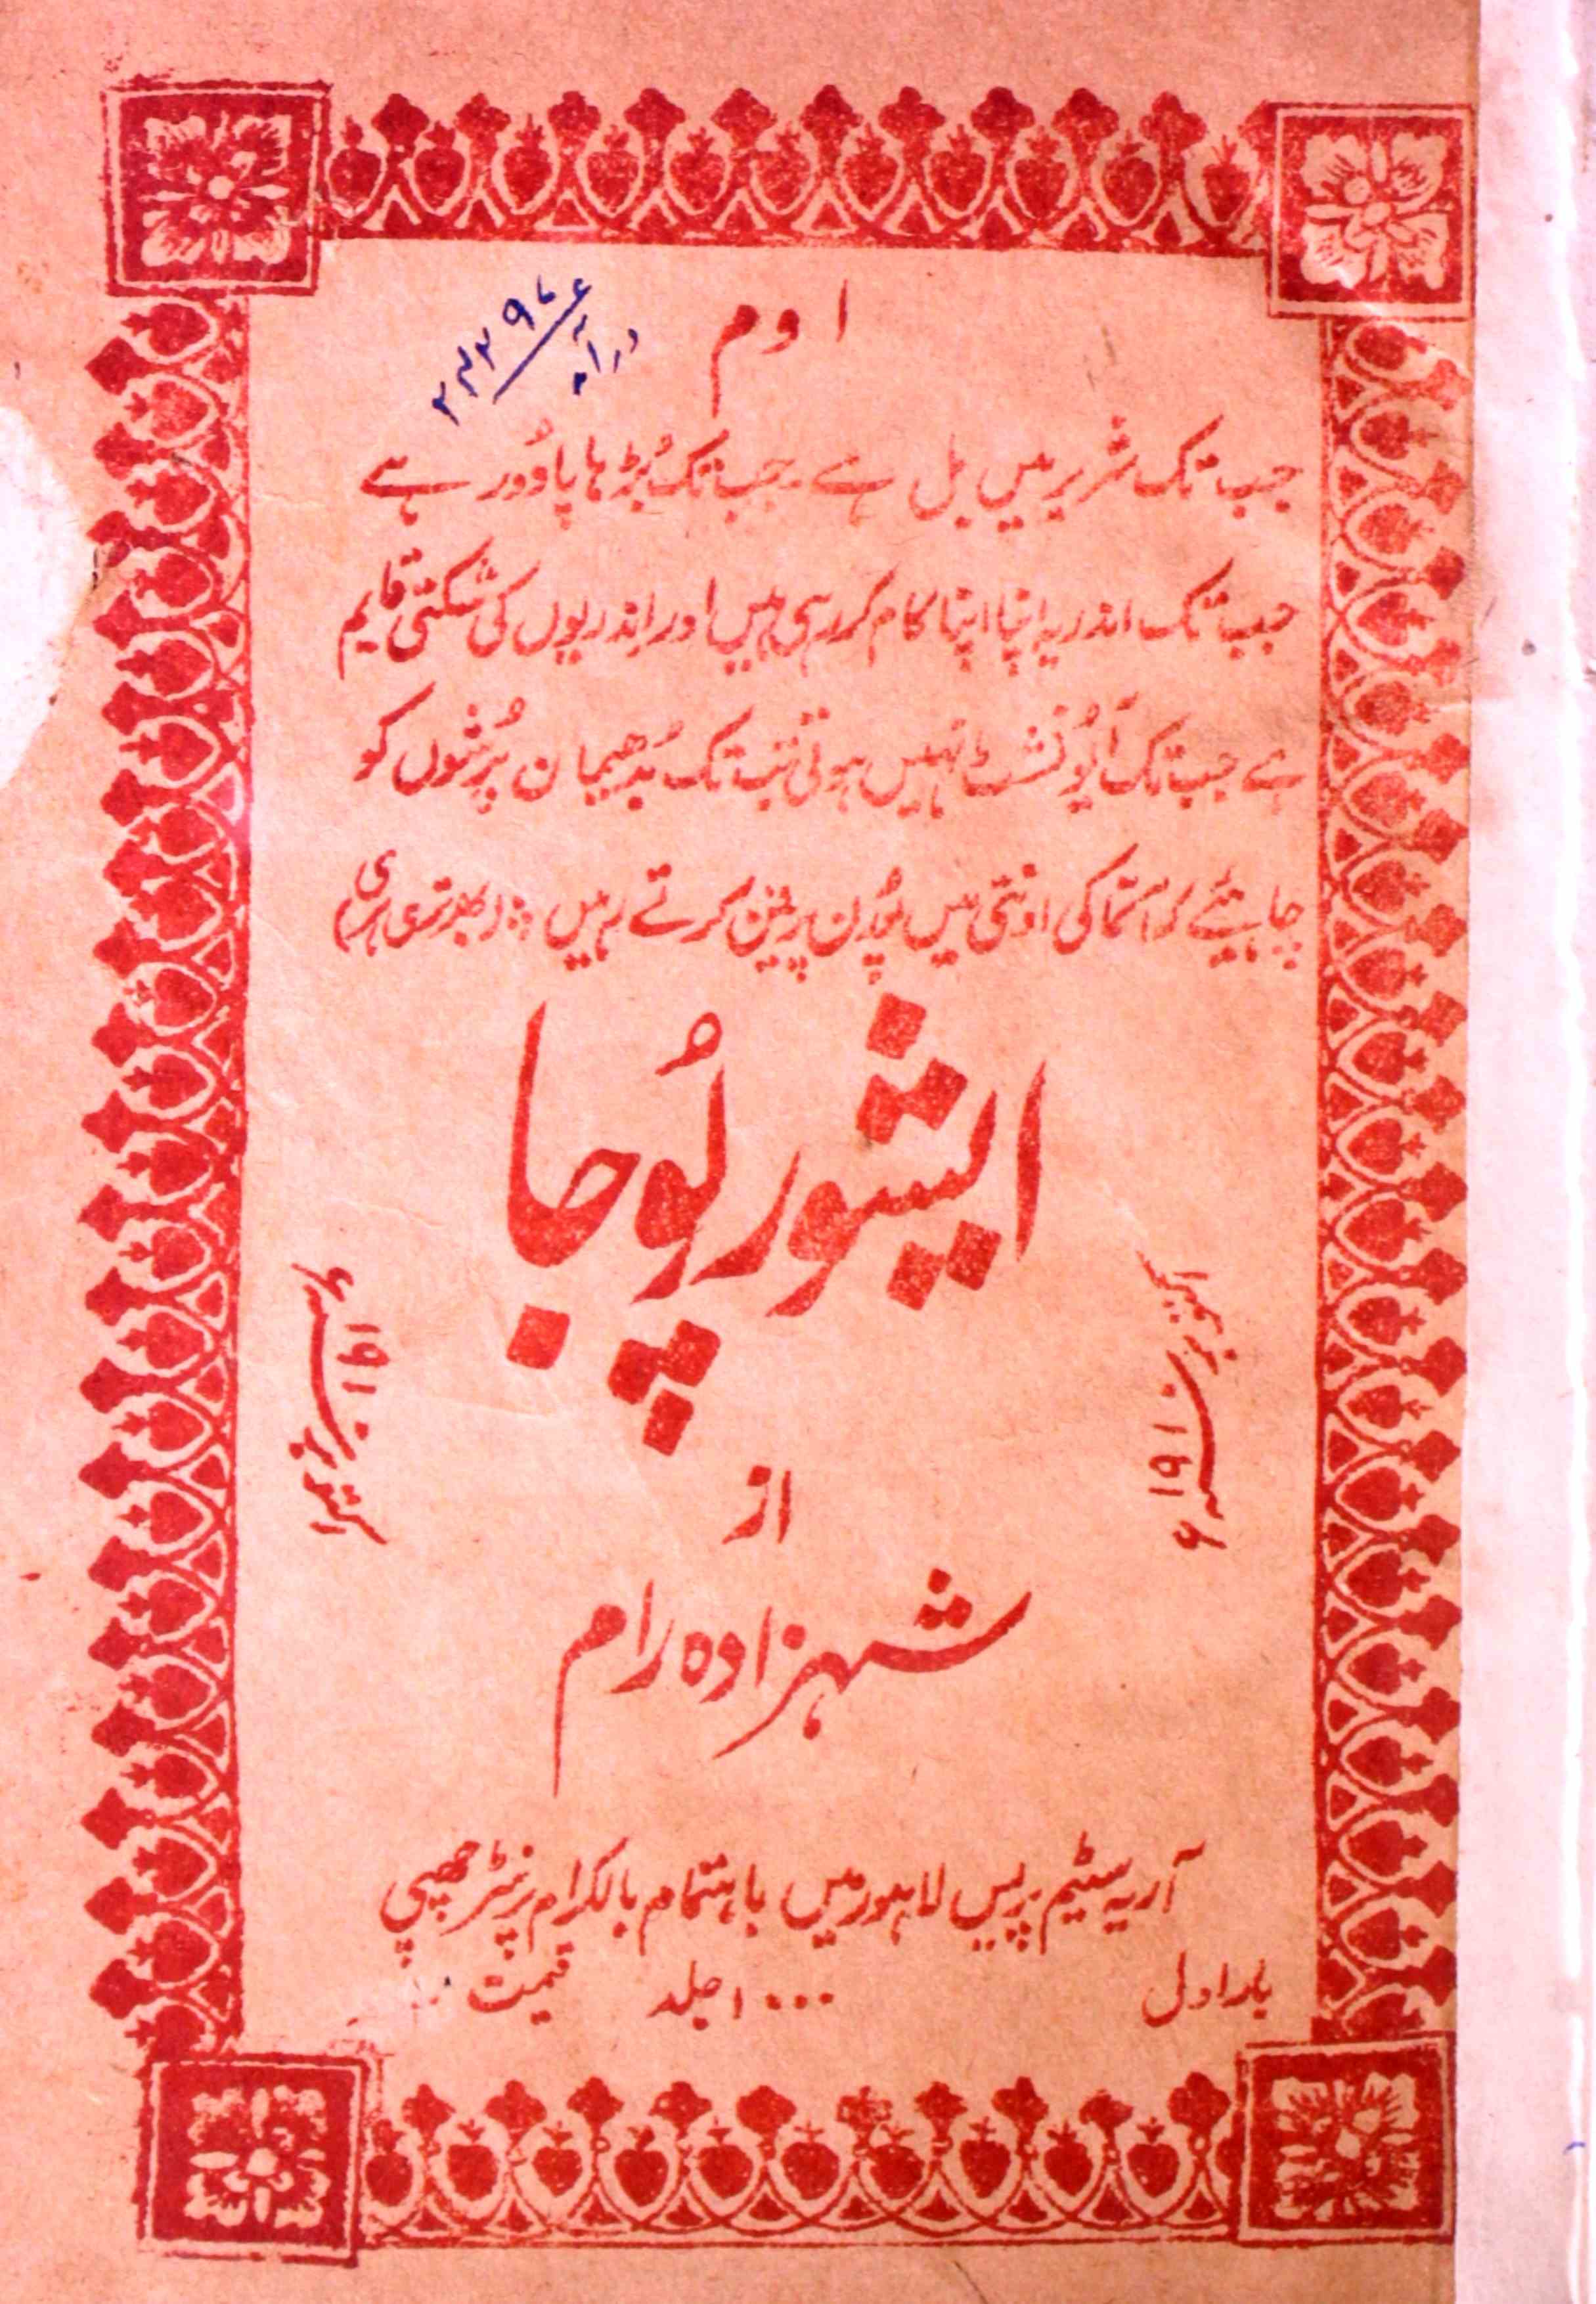 اوم
جب تک شریر میں بل ہے۔ جب تک بُڑھاپا دُور ہے
جب تک اندریہ اپنا اپنا کام کر رہی ہیں اور اندریوں کی شکتی قایم
ہے جب تک آیُو نشٹ نہیں ہوتی تب تک بُدھیمان پُرشوں کو
چاہیئے کہ آتما کی اونتی میں پُورن پریتن کرتے رہیں :: (بھرتری ہری)
ایشور پُوجا
اکتوبر ۱۹۱۰ء
اکتوبر ۱۹۱۰ء
از
شہزادہ رام
آریہ سٹیم پریس لاہور میں باہتمام بالکرام پرنٹر چھپی
بار اول ۱۰۰۰ جلد قیمت